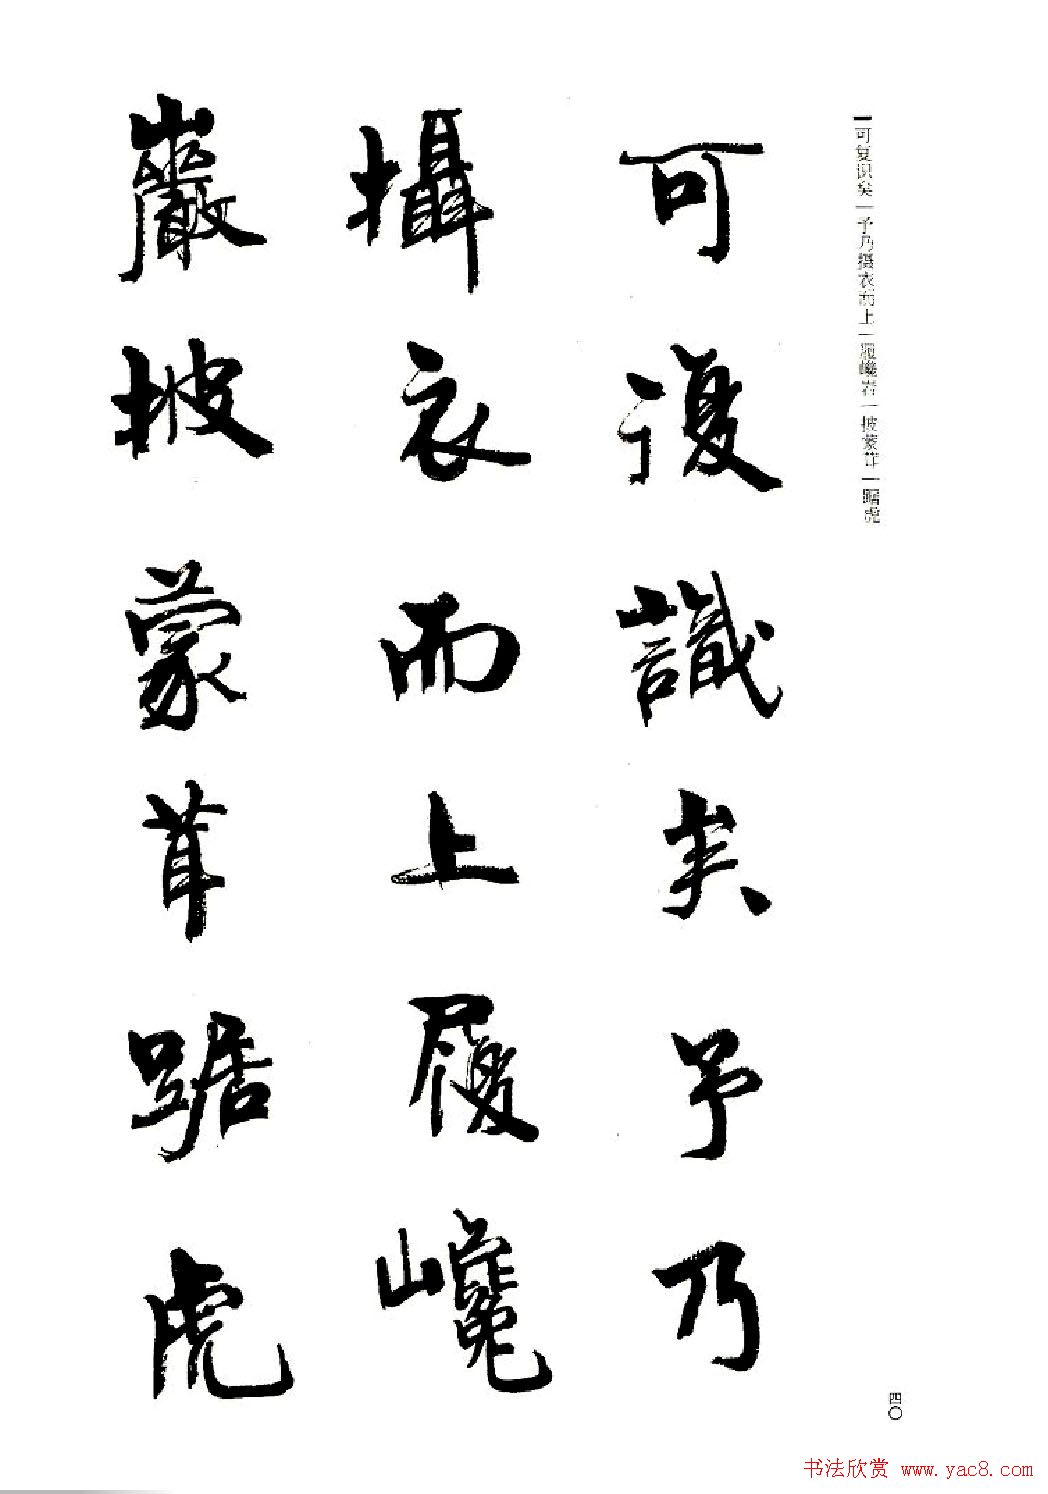 可复识矣｜予乃摄衣而上｜履巉岩｜披蒙茸｜踞虎
可復識矣予乃
攝衣而上履巉
巖披蒙茸踞虎
四〇
书法欣赏 www.yac8.com